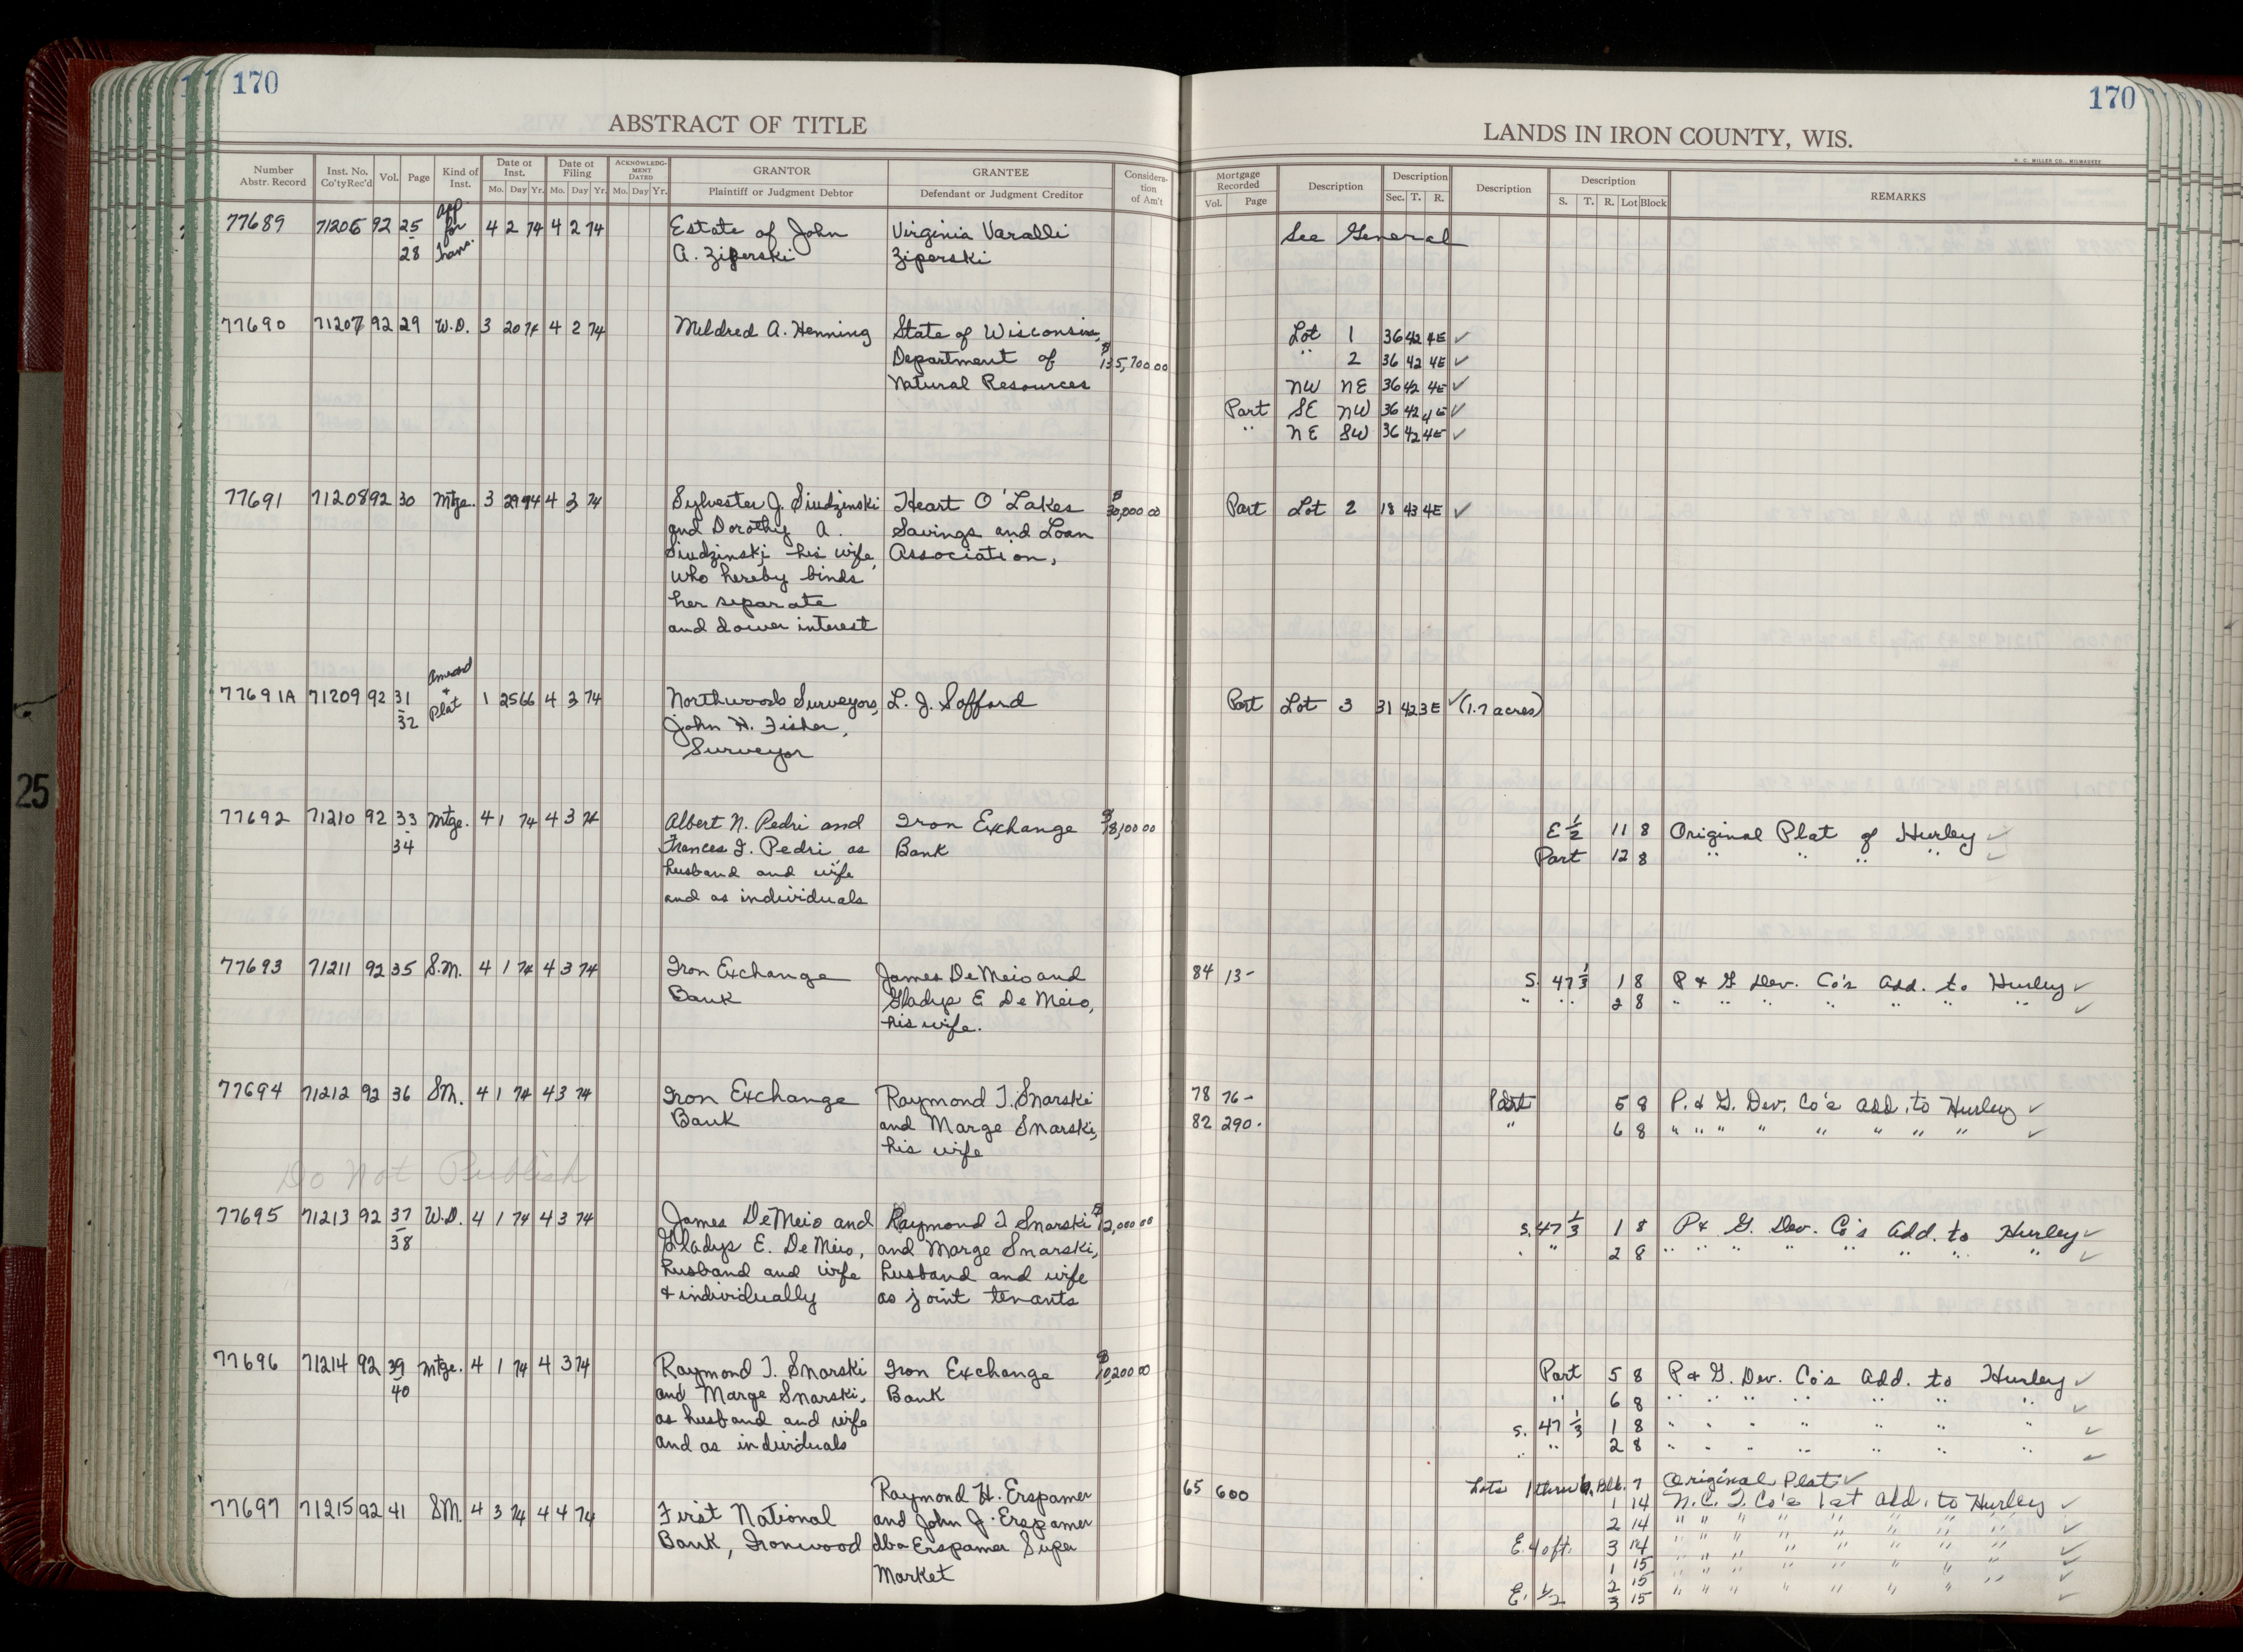 170
ABSTRACT OF TITLE
Number Abstr. Record | Inst. No. Co'ty Rec'd | Vol. | Page | Kind of Inst. | Date of Inst. Mo. Day Yr. | Date of Filing Mo. Day Yr. | ACKNOWLEDGMENT DATED Mo. Day Yr. | GRANTOR Plaintiff or Judgment Debtor | GRANTEE Defendant or Judgment Creditor | Consideration of Am't
77689 71206 92 25 - 28 App. for Tran. 4 2 74 4 2 74 Estate of John Virginia Varalli
A. Ziperski Ziperski
77690 71207 92 29 W.D. 3 20 74 4 2 74 Mildred A. Henning State of Wisconsin,
Department of $135,700.00
Natural Resources
77691 71208 92 30 Mtge. 3 29 74 4 3 74 Sylvester J. Siudzinski Heart O'Lakes $30,000 00
and Dorothy A. Savings and Loan
Siudzinski, his wife, Association,
who hereby binds
her separate
and dower interest
77691A 71209 92 31 - 32 Amend + Plat 1 25 66 4 3 74 Northwoods Surveyors, L. J. Safford
John H. Fisher,
Surveyor
77692 71210 92 33 - 34 Mtge. 4 1 74 4 3 74 Albert N. Pedri and Iron Exchange $18,100 00
Frances I. Pedri as Bank
husband and wife
and as individuals
77693 71211 92 35 S.M. 4 1 74 4 3 74 Iron Exchange James DeMeio and
Bank Gladys E DeMeio,
his wife.
77694 71212 92 36 SM. 4 1 74 4 3 74 Iron Exchange Raymond T. Snarski
Bank and Marge Snarski,
his wife
Do Not Publish
77695 71213 92 37 - 38 W.D. 4 1 74 4 3 74 James DeMeio and Raymond T Snarski $12,000 00
Gladys E. DeMeio, and Marge Snarski,
husband and wife husband and wife
+ individually as joint tenants
77696 71214 92 39 - 40 Mtge. 4 1 74 4 3 74 Raymond T. Snarski Iron Exchange $10,200 00
and Marge Snarski, Bank
as husband and wife
and as individuals
77697 71215 92 41 SM. 4 3 74 4 4 74 First National Raymond H. Erspamer
Bank, Ironwood and John J. Erspamer
dba Erspamer Super
Market
170
LANDS IN IRON COUNTY, WIS.
H. C. MILLER CO., MILWAUKEE
Mortgage Recorded Vol. Page | Description | Description Sec. T. R. | Description | Description S. T. R. Lot Block | REMARKS
See General
Lot 1 36 42 4E ✓
" 2 36 42 4E ✓
NW NE 36 42 4E ✓
Part SE NW 36 42 4E ✓
" NE SW 36 42 4E ✓
Part Lot 2 18 43 4E ✓
Part Lot 3 31 42 3E ✓ (1.7 acres)
E 1/2 11 8 Original Plat of Hurley ✓
Part 12 8 " " " " ✓
84 13- S. 47 1/3 1 8 P & G Dev. Co's Add. to Hurley ✓
" " 2 8 " " " " " " " ✓
78 76- Part 5 8 P. & G. Dev. Co's Add. to Hurley ✓
82 290- " 6 8 " " " " " " " " ✓
S. 47 1/3 1 8 P & G. Dev. Co's Add. to Hurley ✓
" " 2 8 " " " " " " " " ✓
Part 5 8 P & G. Dev. Co's Add. to Hurley ✓
" 6 8 " " " " " " " " ✓
S. 47 1/3 1 8 " " " " " " " " ✓
" " 2 8 " " " " " " " " ✓
65 600 Lots 1 thru 6, Blk. 7 Original Plat ✓
1 14 N.C.I. Co's 1st Add. to Hurley ✓
2 14 " " " " " " " " ✓
E. 40 ft. 3 14 " " " " " " " " ✓
1 15 " " " " " " " " ✓
2 15 " " " " " " " " ✓
E. 1/2 3 15 " " " " " " " " ✓
25